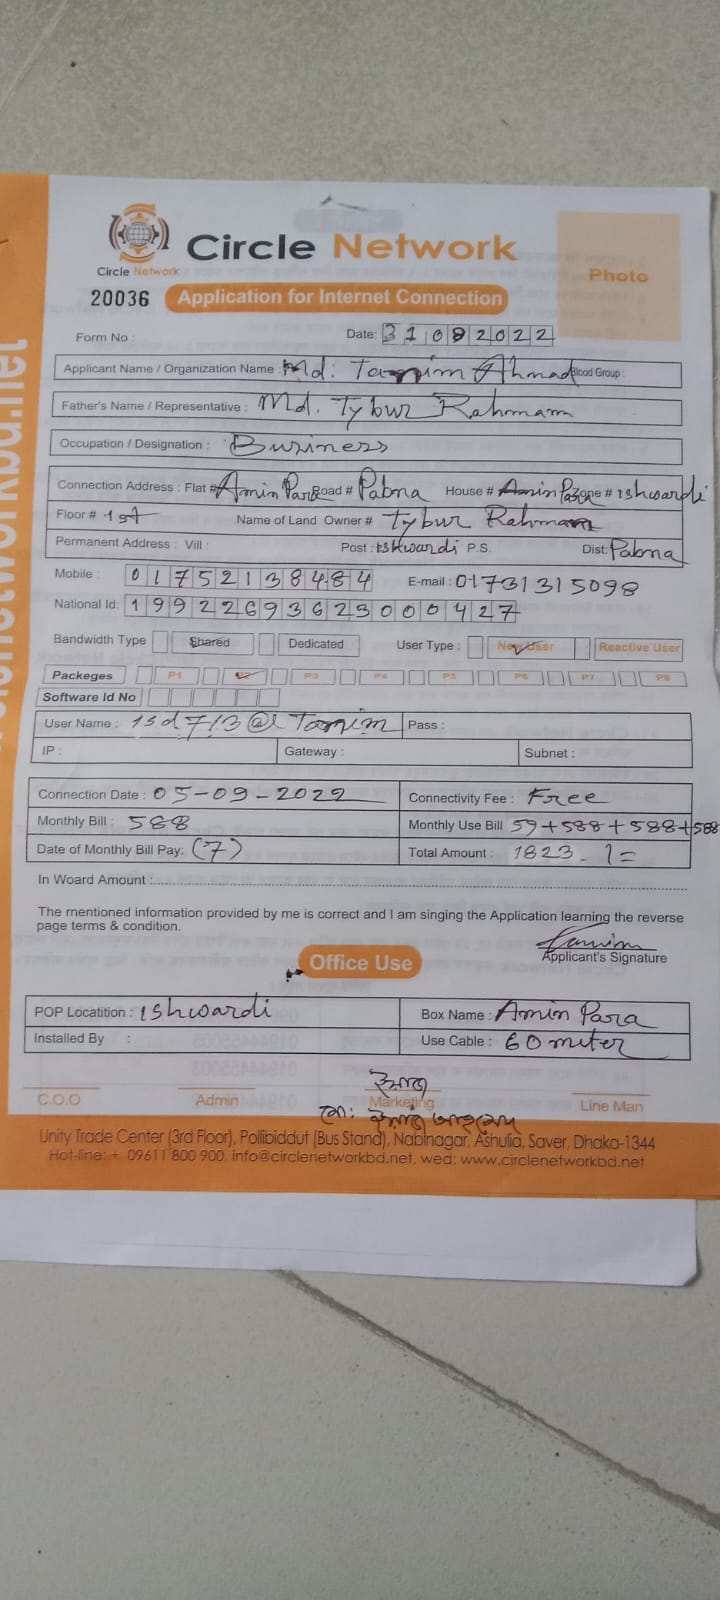 Circle Network
Circle Network
Photo
20036 Application for Internet Connection
Form No : Date: 31082022
Applicant Name / Organization Name : Md: Tamim Ahmad Blood Group :
Father's Name / Representative : Md. Tybur Rahmam
Occupation / Designation : Business
Connection Address : Flat # Amin Para Road # Pabna House # Amin Para Zone # Ishwardi
Floor # 1st Name of Land Owner # Tybur Rahman
Permanent Address : Vill : Post : Ishwardi P.S. Dist: Pabna
Mobile : 01752138484 E-mail : 01731315098
National Id: 19922693623000427
Bandwidth Type Shared Dedicated User Type : New User Reactive User
Packeges P1 P2 P3 P4 P5 P6 P7 P8
Software Id No
User Name : isd713@ Tamim Pass :
IP : Gateway : Subnet :
Connection Date : 05-09-2022 Connectivity Fee : Free
Monthly Bill : 588 Monthly Use Bill 59+588+588+588
Date of Monthly Bill Pay: (7) Total Amount : 1823.-/=
In Woard Amount :
The mentioned information provided by me is correct and I am singing the Application learning the reverse
page terms & condition.
Tamim
Applicant's Signature
Office Use
POP Locatition : Ishwardi Box Name : Amin Para
Installed By : Use Cable : 60 miter
C.O.O Admin Marketing Line Man
Unity Trade Center (3rd Floor), Pollibiddut (Bus Stand), Nabinagar, Ashulia, Saver, Dhaka-1344
Hot-line: + 09611 800 900, info@circlenetworkbd.net, wed: www.circlenetworkbd.net